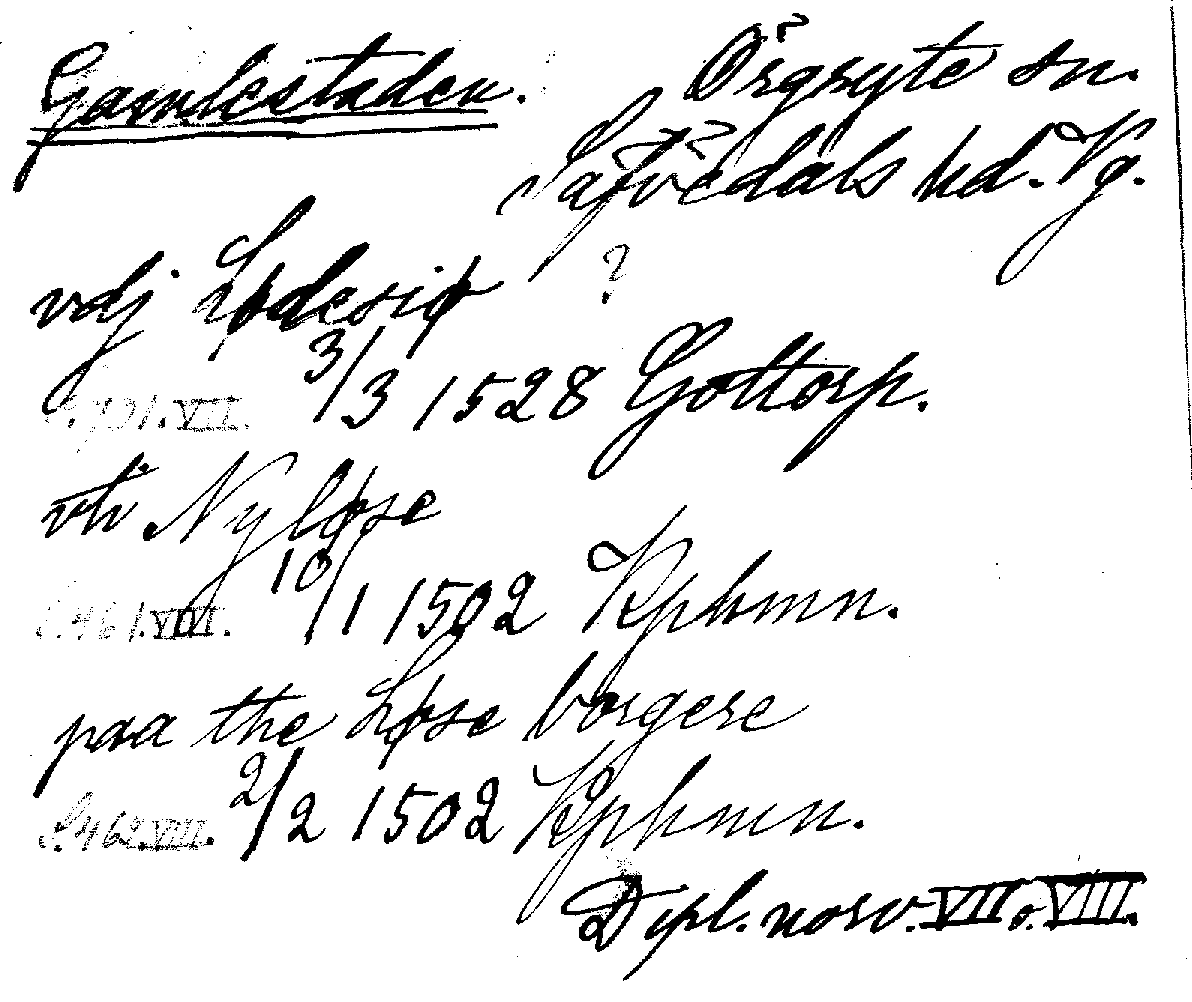 Gamlestaden. Örgryte sn.
Sävedals hd. Vg.
vdj Lødesiø ?
S. 701. VII. 3/3 1528 Gottorp.
vti Nyløse
S. 461. VIII. 10/1 1502 Kphmn.
paa the Løse borgere
S. 462. VIII. 2/2 1502 Kphmn.
Dipl. norv. VII o. VIII.